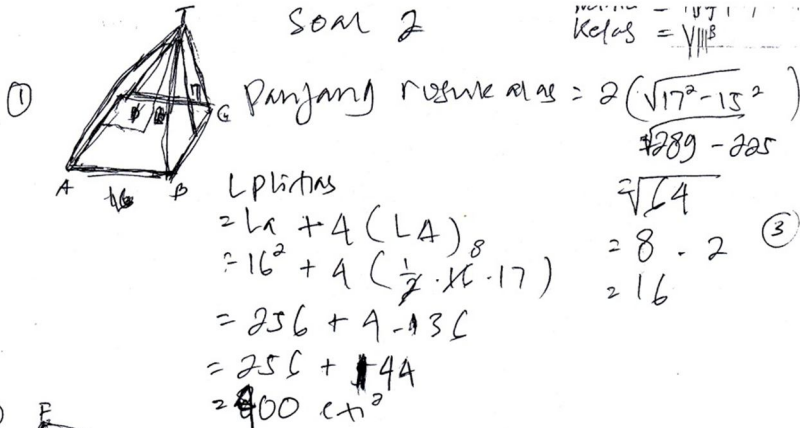 Soal 2
Kelas = VIII B
①
T
A
B
C
16
Panjang rusuk alas = 2 (√17² - 15²)
√289 - 225
= √64
= 8 . 2
= 16
③
L plimas
= La + 4 (LΔ)
= 16² + 4 (1/2 . 16 . 17) 8
= 256 + 4 . 136
= 256 + 144
= 400 cm²